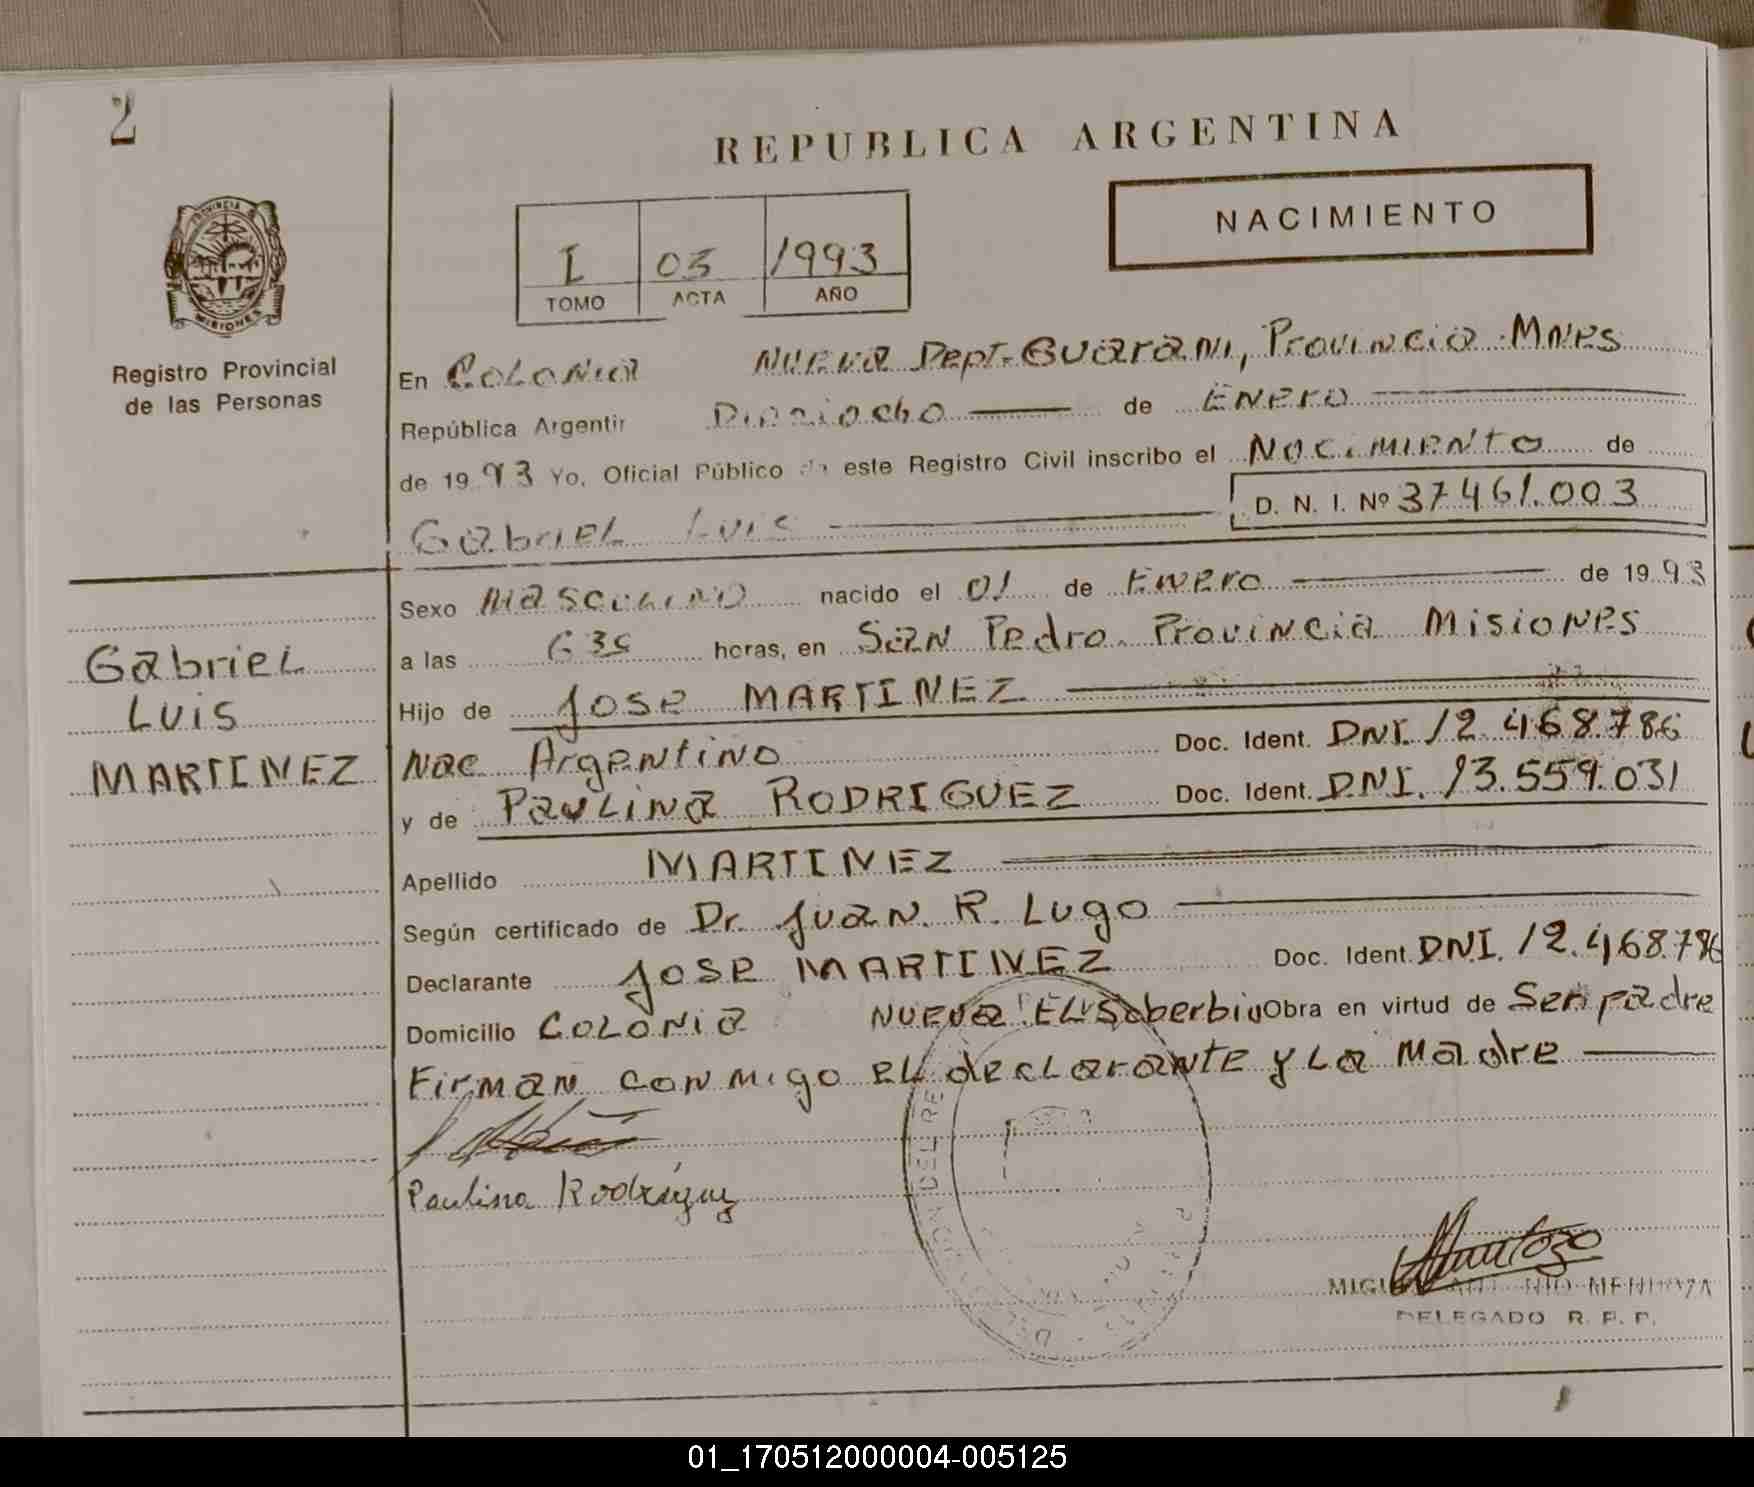 2
REPUBLICA ARGENTINA
NACIMIENTO
PROVINCIA
MISIONES
I 03 1993
TOMO ACTA AÑO
Registro Provincial
de las Personas
En Colonia Nueva Dept. Guarani, Provincia Mnes
República Argentin Dieciocho de Enero
de 1993 Yo, Oficial Público de este Registro Civil inscribo el Nacimiento de
Gabriel Luis D. N. I. Nº 37461.003
Sexo Masculino nacido el 01 de Enero de 1993
a las 635 horas, en San Pedro Provincia Misiones
Hijo de Jose MARTINEZ
Nac Argentino Doc. Ident. DNI. 12.468.786
y de Paulina RODRIGUEZ Doc. Ident. DNI. 13.559.031
Apellido MARTINEZ
Según certificado de Dr. Juan R. Lugo
Declarante Jose MARTINEZ Doc. Ident. DNI. 12.468.786
Domicilio Colonia Nueva El Soberbio Obra en virtud de Ser padre
Firman conmigo el declarante y la Madre
Gabriel
Luis
MARTINEZ
Paulina Rodriguez
MIGUEL ANTONIO MENDOZA
DELEGADO R. P. P.
01_170512000004-005125